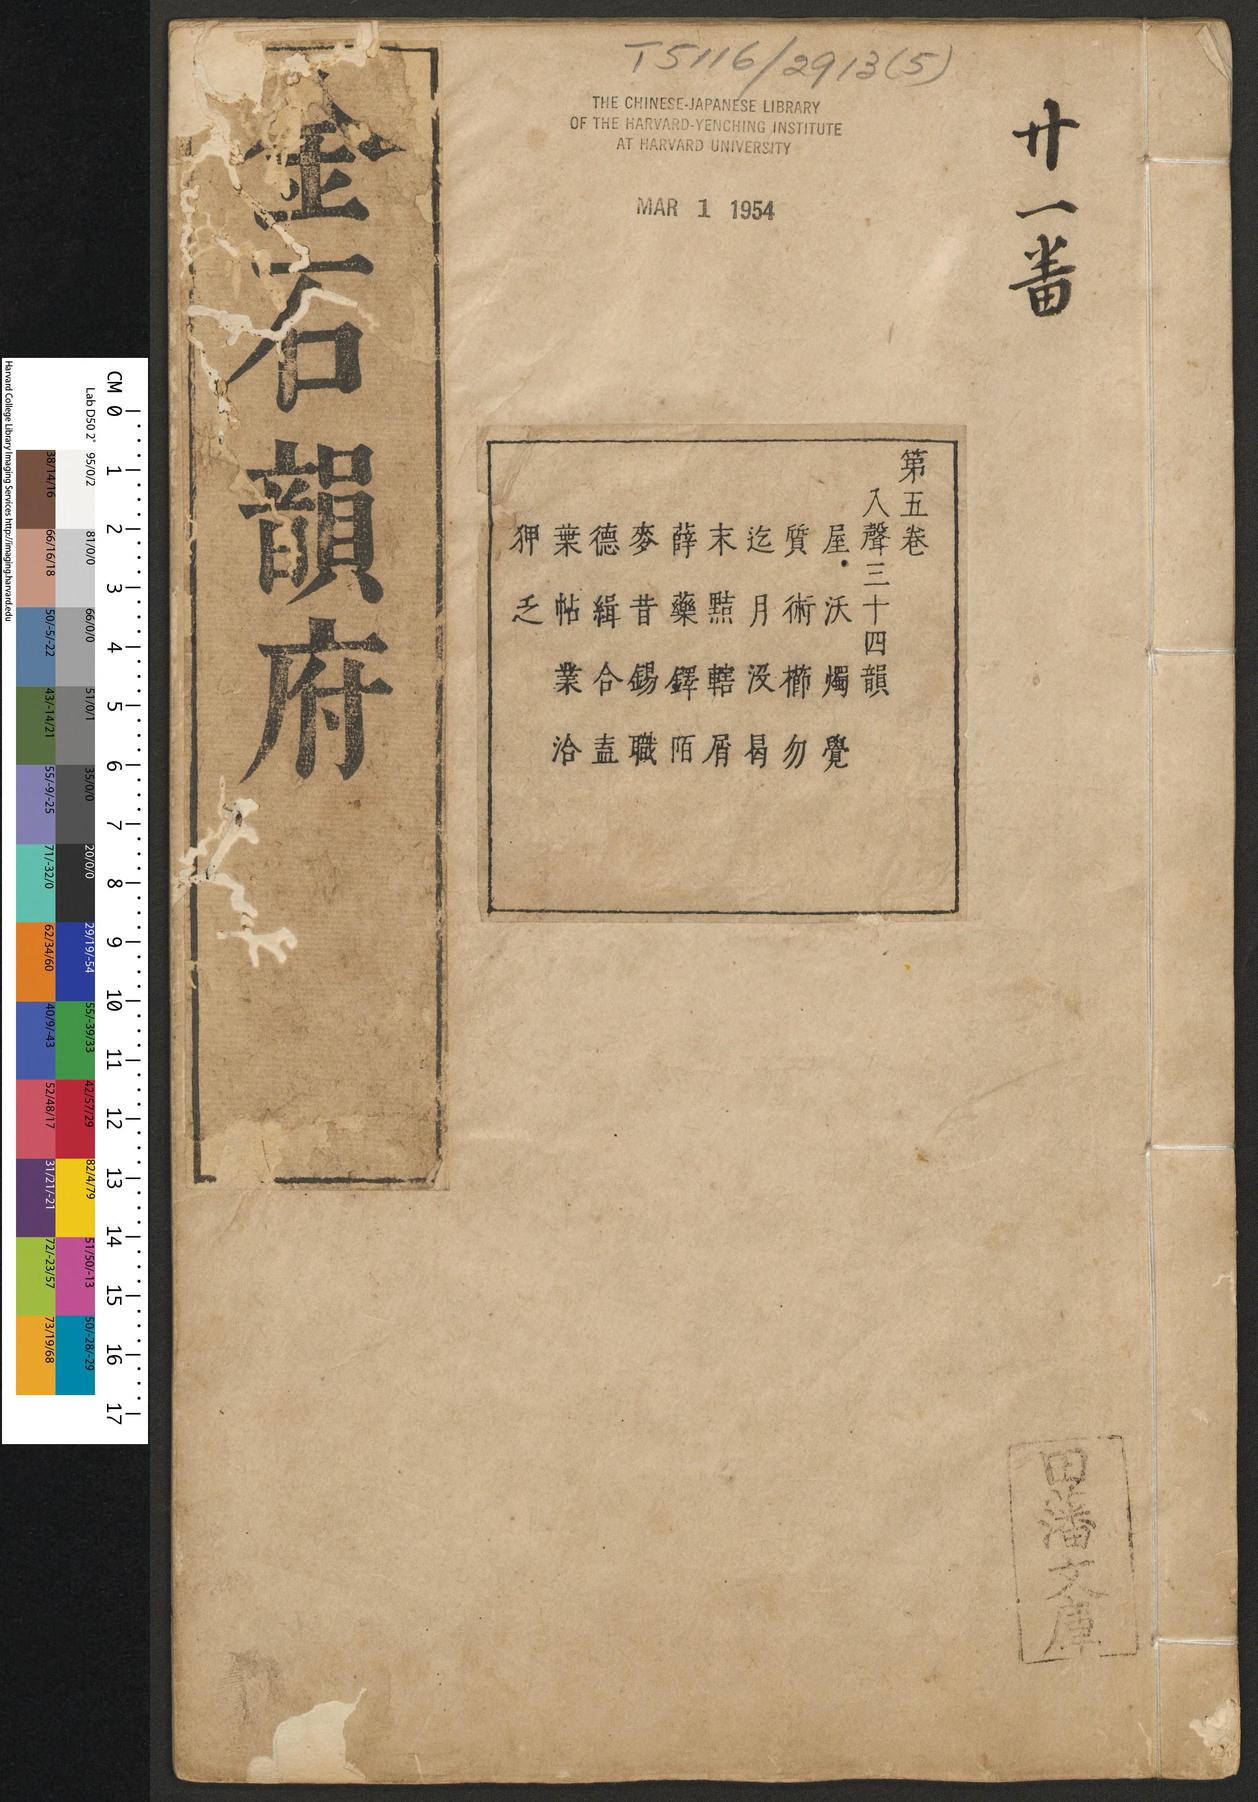 T5116/2913(5)
THE CHINESE-JAPANESE LIBRARY
OF THE HARVARD-YENCHING INSTITUTE
AT HARVARD UNIVERSITY
MAR 1 1954
廿一番
第五卷
入聲三十四韻
屋 沃 燭 覺
質 術 櫛 勿
迄 月 沒 曷
末 黠 轄 屑
薛 藥 鐸 陌
麥 昔 錫 職
德 緝 合 盍
葉 帖 業 洽
狎 乏
金石韻府
田藩文庫
CM 0 1 2 3 4 5 6 7 8 9 10 11 12 13 14 15 16 17
Lab D50 2°
95/0/2
81/0/0
66/0/0
51/0/1
35/0/0
20/0/0
29/19/-54
55/-39/33
42/57/29
82/4/79
51/50/-13
50/-28/-29
38/14/16
66/16/18
50/-5/-22
43/-14/21
55/-9/-25
71/-32/0
62/34/60
40/9/-43
52/48/17
31/21/-21
72/-23/57
73/19/68
Harvard College Library Imaging Services http://imaging.harvard.edu